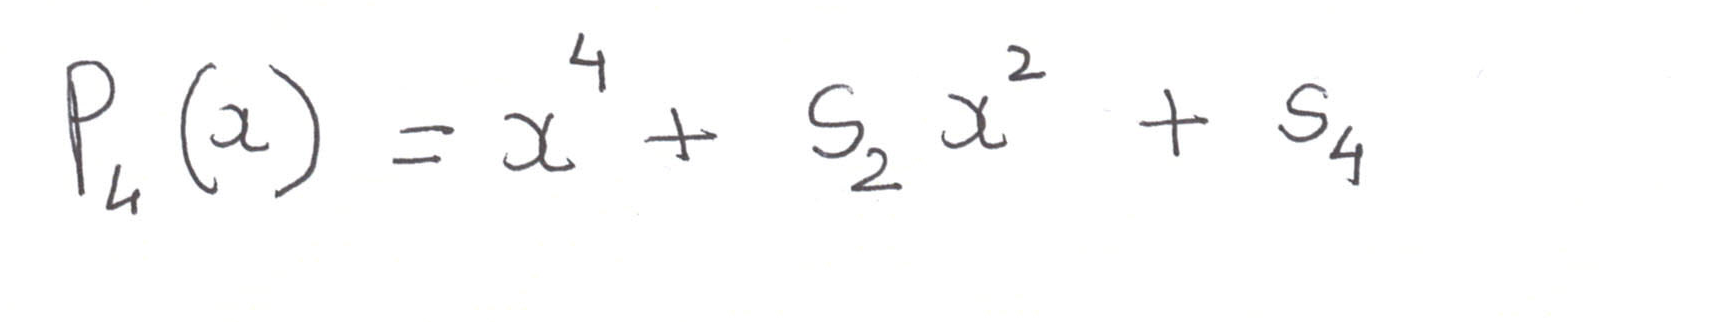 P₄(x) = x⁴ + S₂ x² + S₄